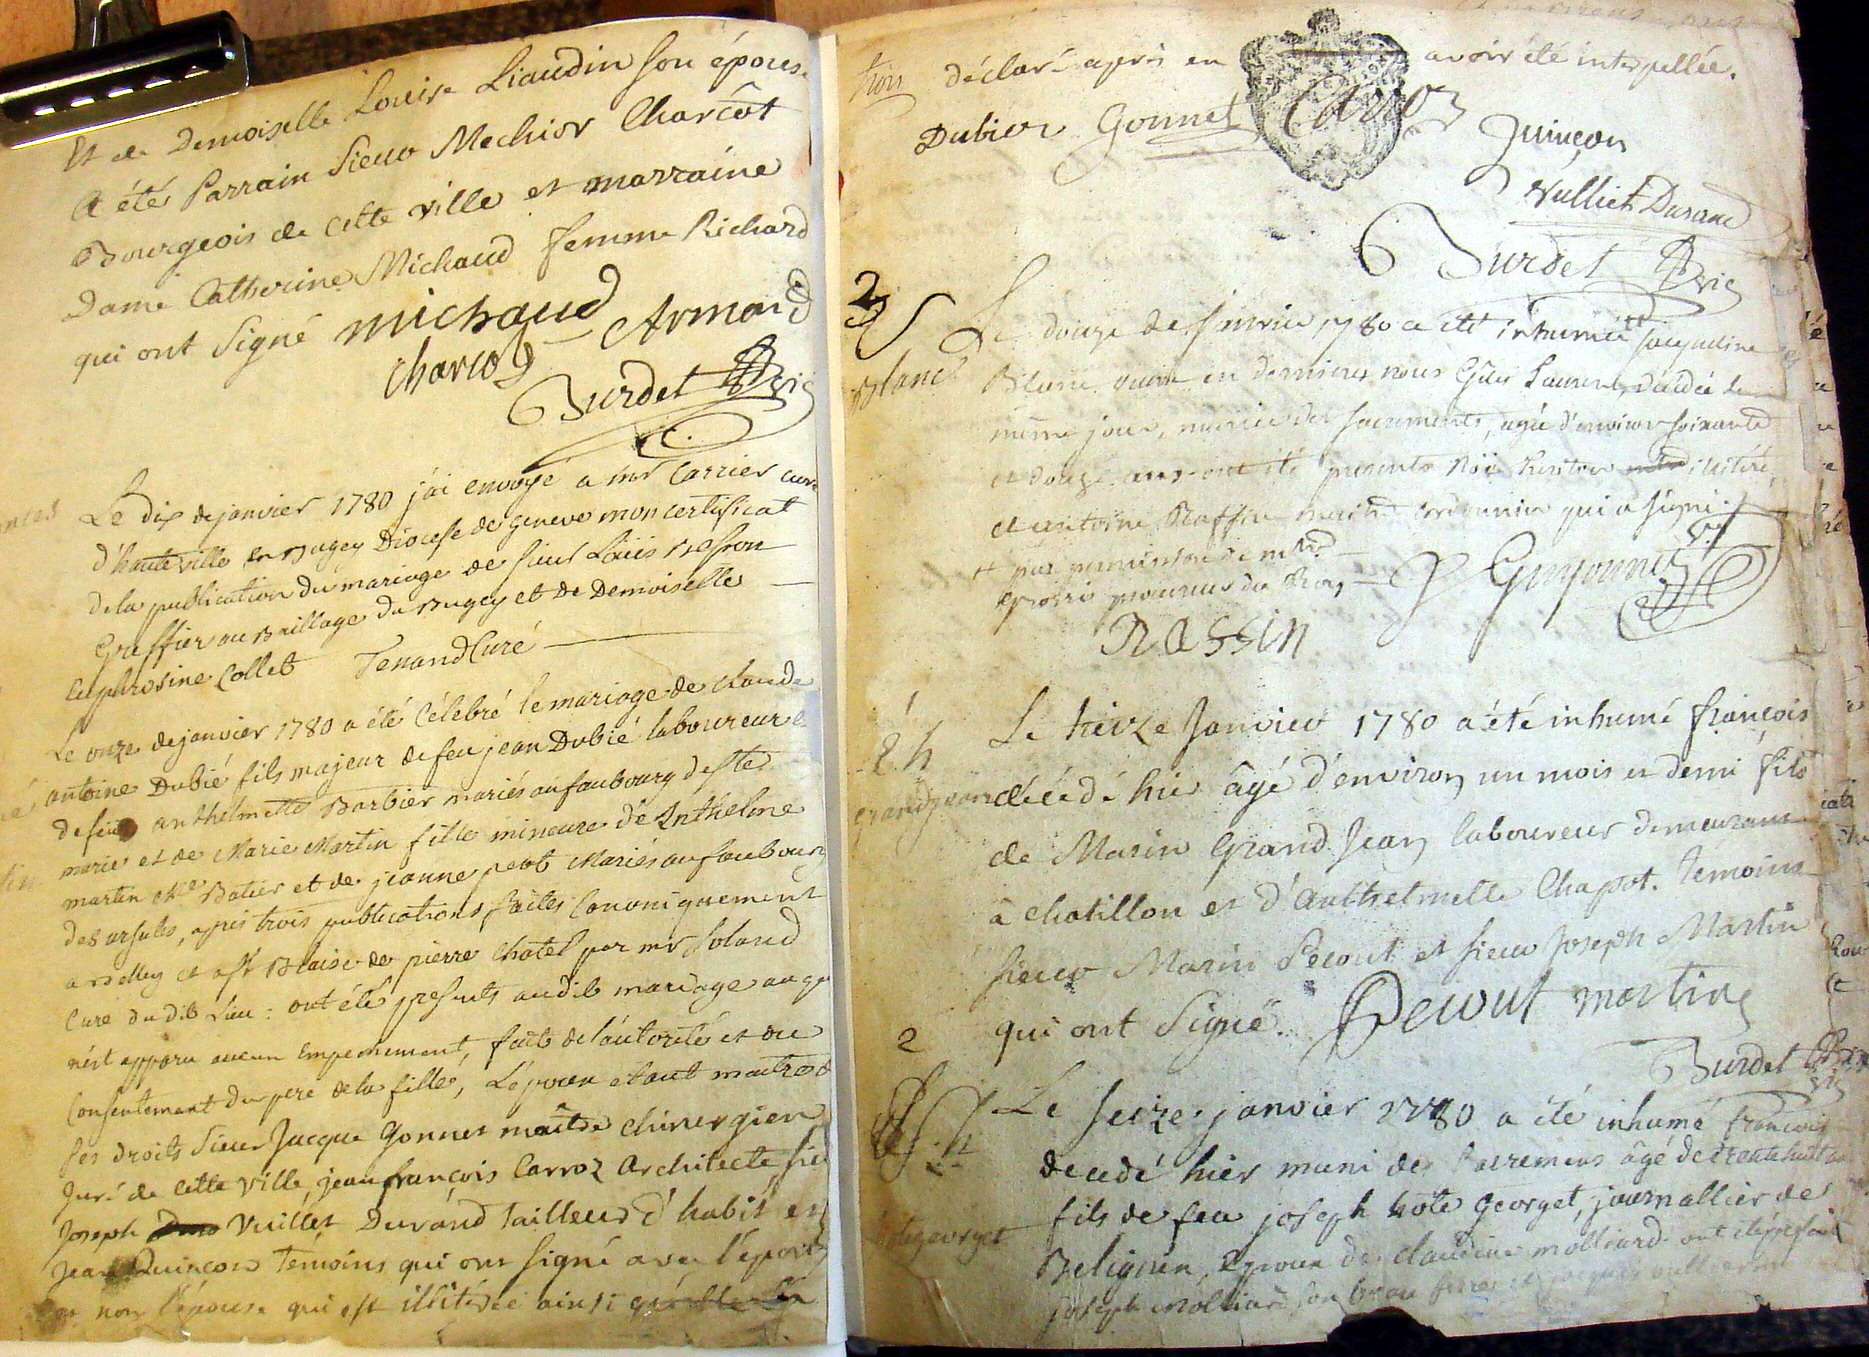 Et de Demoiselle Louise Liaudin son épouse
A été Parrain Sieur Mechior Charcot
Bourgeois de cette ville et marraine
Dame Catherine Michaud femme Richard
qui ont Signé michaud Armand
Charcot
Burdet vic
Le dix de janvier 1780 j'ai envoyé a mr Carrier curé
d'hauteville en Bugey Diocese de geneve mon certificat
de la publication du mariage de sieur Loüis Besson
Greffier au Baillage du Bugey et de Demoiselle
Euphrosine Collet Tenand Curé
Le onze de janvier 1780 a été Célébré le mariage de claude
antoine Dubié fils majeur de feu jean Dubié laboureur
de feue anthelmette Barbier mariés au faubourg de ste
marie et de Marie Martin fille mineure d'Anthelme
martin Batier et de jeanne peot Mariés au faubourg
des ursules, apres trois publications faites Canoniquement
a et a st Blaise de pierre Chatel par mr Goland
Curé du dit Lieu : ont été presents audit mariage auquel
n'est apparu aucun Empechement, fait de l'autorité et du
Consentement du pere de la fille, L'epoux étant maitre de
ses droits Sieur Jacque Gonnet maître Chirurgien
Juré de Cette Ville, jean françois Carroz Architecte sieur
Joseph Vuillet Durand Tailleur d'habit et
Jean Quinçon Témoins qui ont Signé avec l'époux
non l'épouse qui est illitérée ainsi qu'elle l'a
déclaré après en avoir été interpellée.
Dubier Gonnet Carroz
Quinçon
Vulliet Durand
Burdet vic
2
Le douze de janvier 1780 a été inhumée Jacqueline
Blanc
Blanc veuve en dernieres noces Laurent, décédée le
même jour, munie des sacrements, agée d'environ soixante
et douze ans ont été presents illitéré,
et antoine Raffin cordonnier qui a signé
et par permission de
procureur du Roy Guyonnet
RASSIN
Le treize Janvier 1780 a été inhumé françois
grandjean
décédé hier âgé d'environ un mois et demi fils
de Marin Grand Jean laboureur demeurant
à chatillon et d'Anthelmette Chapot. Témoins
sieur Marin Pecout et sieur Joseph Martin
qui ont Signé. Pecout martin
Burdet vic
2
Le seize janvier 1780 a été inhumé francois
decedé hier muni des Sacremens âgé de trente huit ans
fils de feu joseph hote georget, journallier de
hote georget
Belignin, Epoux de claudine molliard ont été presents
joseph molliard son beau frere et jacques